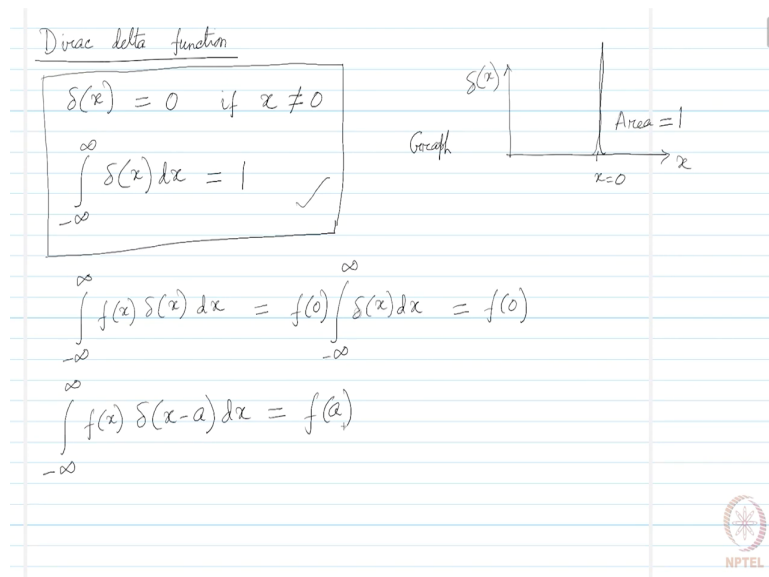 Dirac delta function
δ(x) = 0 if x ≠ 0
∫_{-∞}^{∞} δ(x) dx = 1 ✓
Graph
δ(x)
Area = 1
x
x=0
∫_{-∞}^{∞} f(x) δ(x) dx = f(0) ∫_{-∞}^{∞} δ(x) dx = f(0)
∫_{-∞}^{∞} f(x) δ(x-a) dx = f(a)
NPTEL